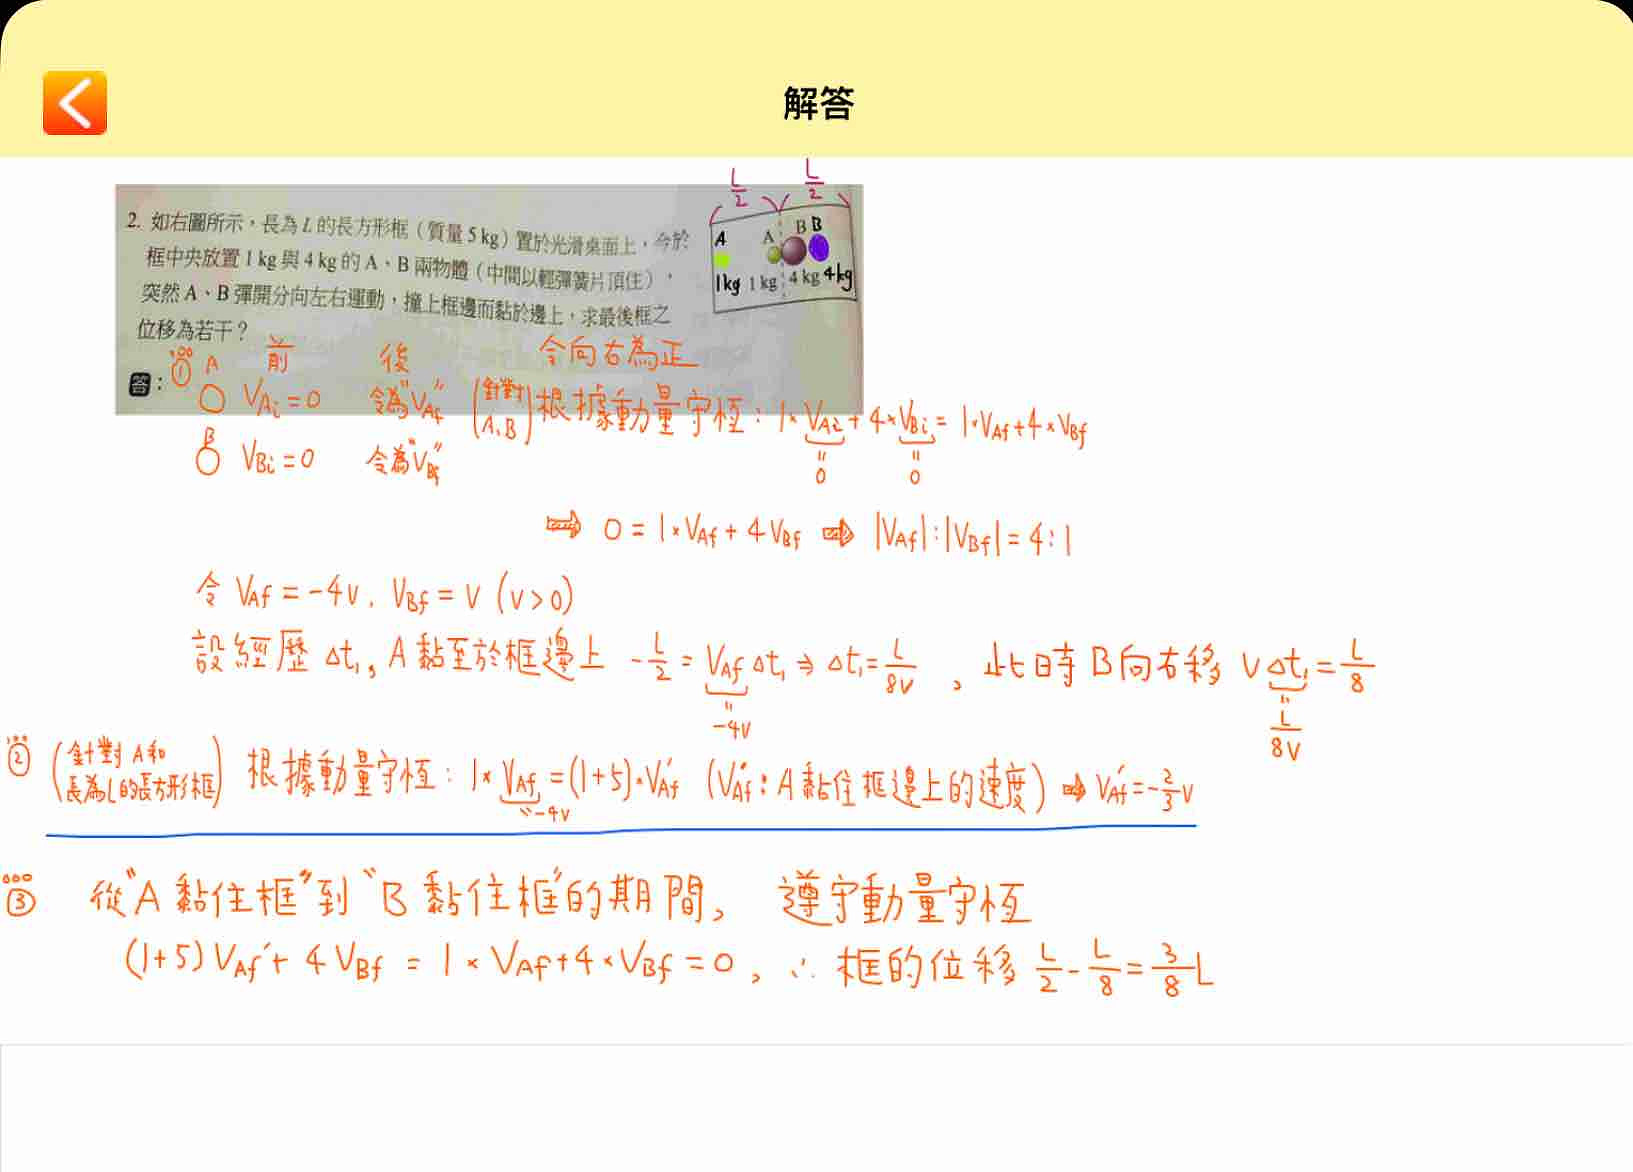 解答
L/2 L/2
2. 如右圖所示，長為 L 的長方形框（質量 5 kg）置於光滑桌面上，今於
框中央放置 1 kg 與 4 kg 的 A、B 兩物體（中間以輕彈簧片頂住），
突然 A、B 彈開分向左右運動，撞上框邊而黏於邊上，求最後框之
位移為若干？
A A B B
1kg 1 kg 4 kg 4kg
答：
① A 前 後 令向右為正
V_Ai = 0 令為"V_Af" (針對A、B) 根據動量守恆：1×V_Ai + 4×V_Bi = 1×V_Af + 4×V_Bf
B V_Bi = 0 令為"V_Bf" 0 0
⇒ 0 = 1×V_Af + 4V_Bf ⇒ |V_Af|:|V_Bf| = 4:1
令 V_Af = -4v, V_Bf = v (v>0)
設經歷 Δt₁, A 黏至於框邊上 -L/2 = V_Af Δt₁ ⇒ Δt₁ = L/8v , 此時 B 向右移 vΔt₁ = L/8
-4v L/8v
② (針對 A 和長為L的長方形框) 根據動量守恆：1×V_Af = (1+5)×V_Af' (V_Af'：A 黏住框邊上的速度) ⇒ V_Af' = -2/3 v
-4v
③ 從"A 黏住框"到"B 黏住框"的期間, 遵守動量守恆
(1+5)V_Af' + 4V_Bf = 1×V_Af + 4×V_Bf = 0, ∴ 框的位移 L/2 - L/8 = 3/8 L